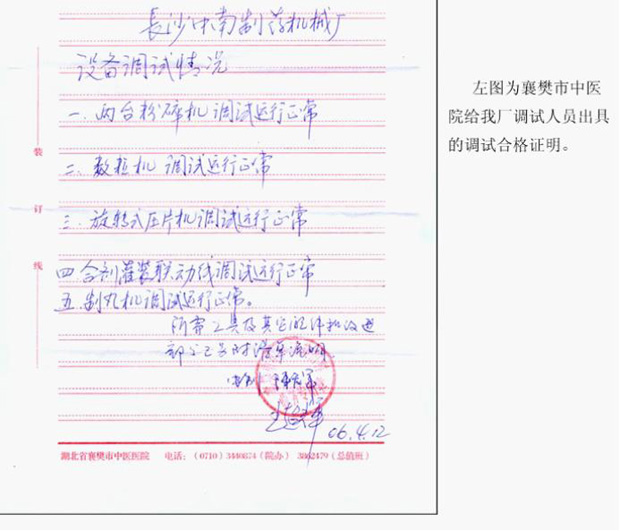 长沙中南制药机械厂
设备调试情况
一.两台粉碎机调试运行正常
二.数粒机调试运行正常
三.旋转式压片机调试运行正常
四合剂灌装联动线调试运行正常
五.制丸机调试运行正常。
所需工具及其它配件和改进
部分已另附清单说明
06.4.12
装
订
线
湖北省襄樊市中医医院 电话:(0710)3440674(院办) 3862479(总值班)
左图为襄樊市中医
院给我厂调试人员出具
的调试合格证明。